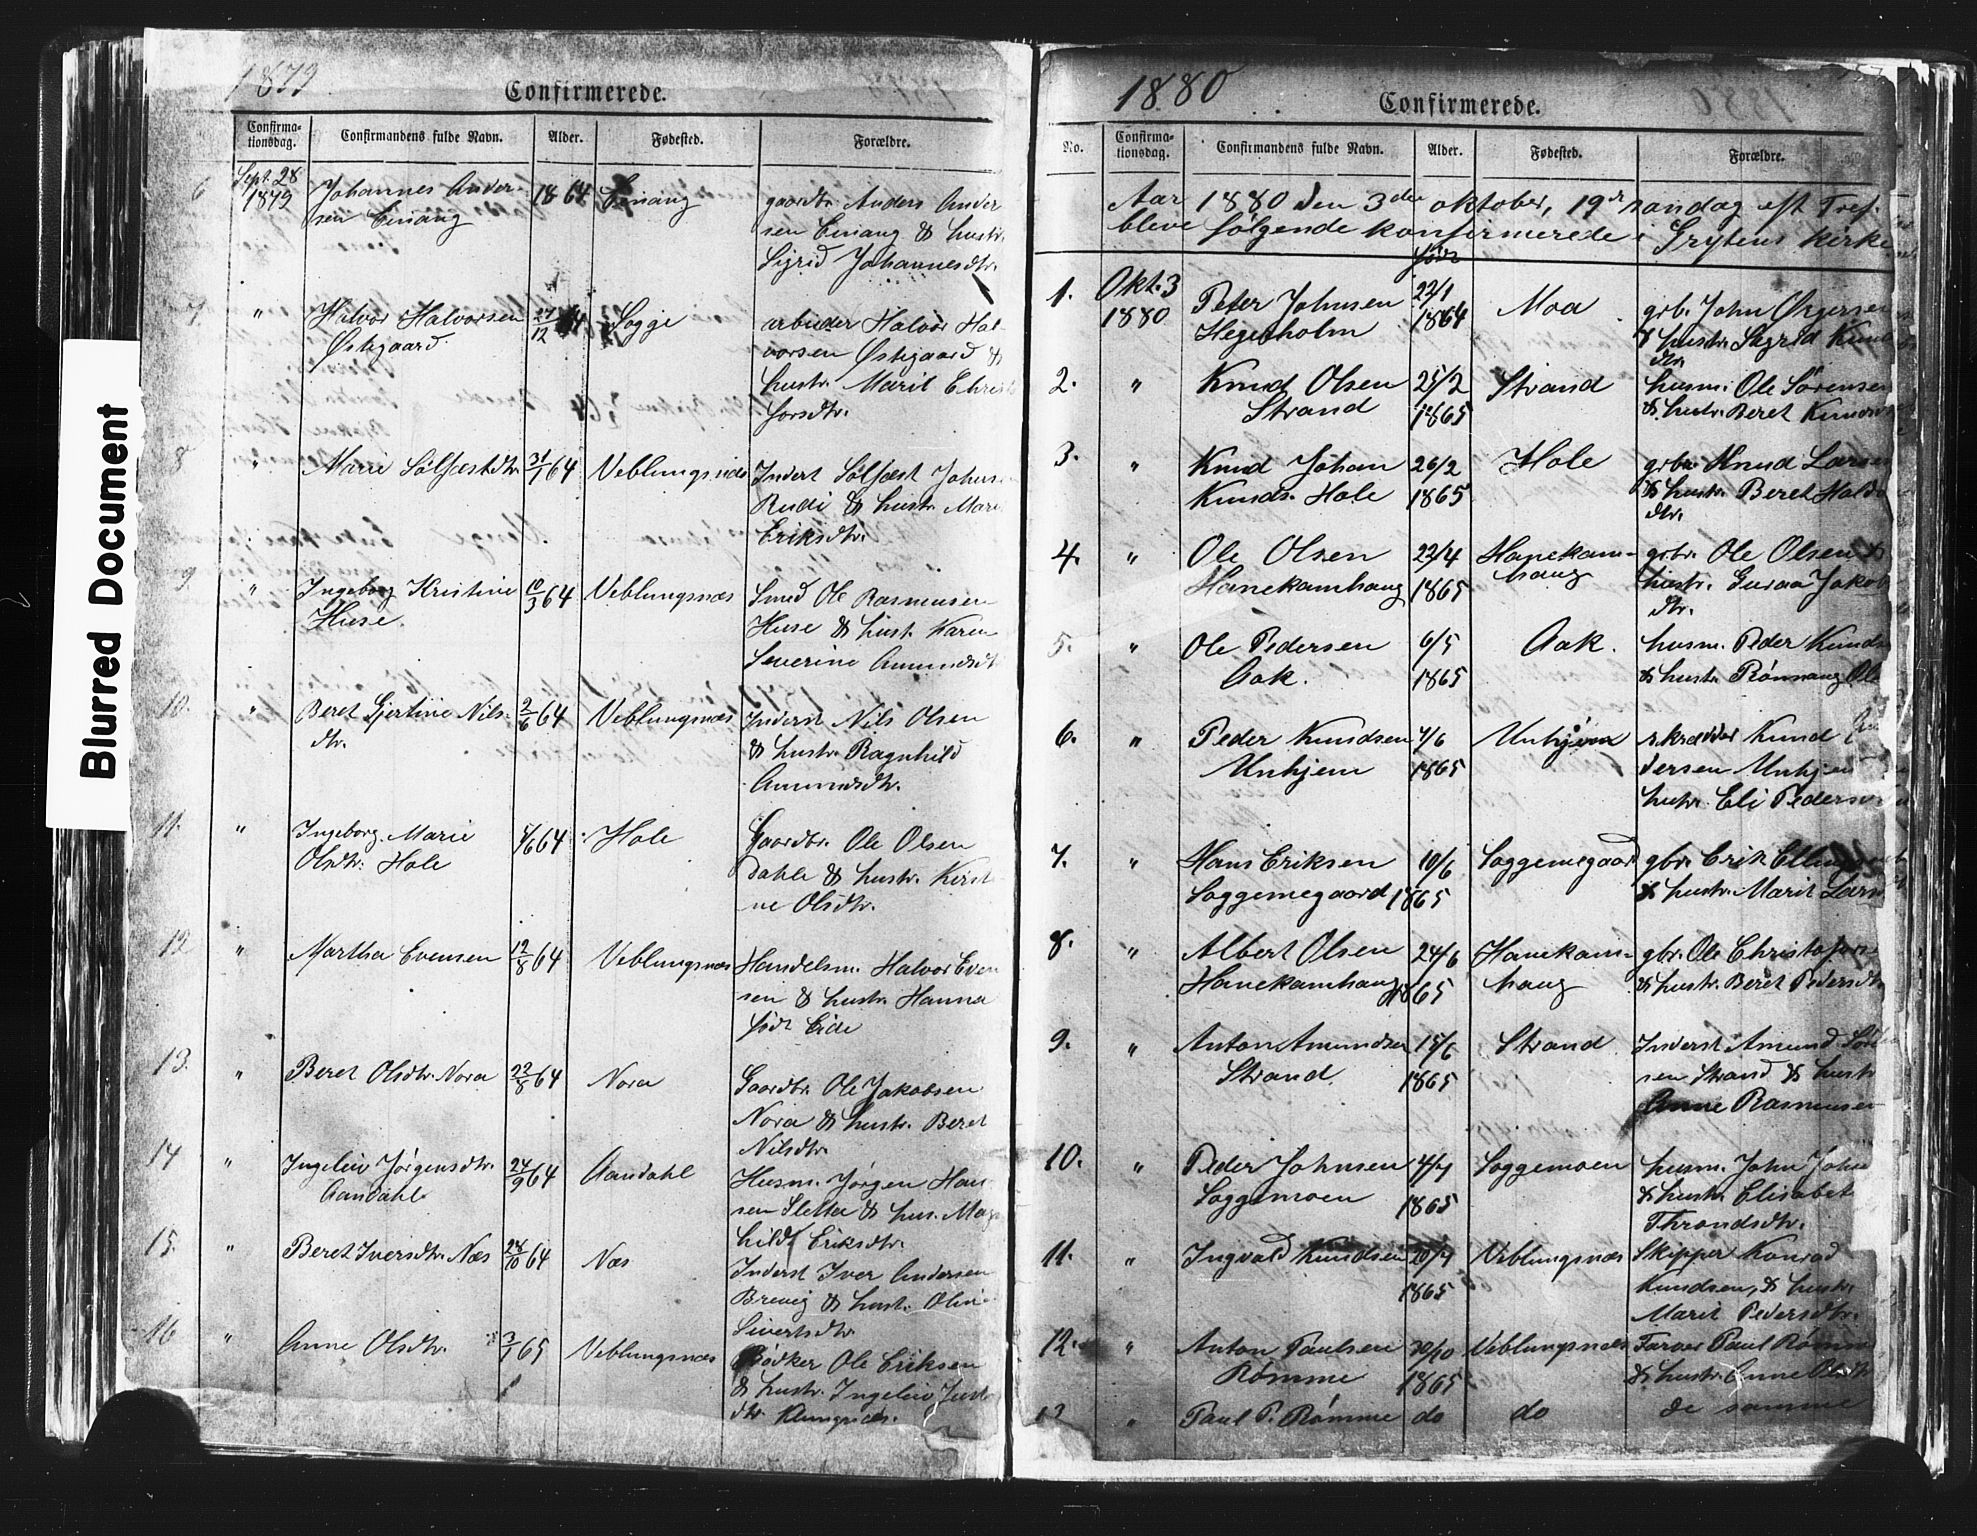 Blurred Document
1879
Confirmerede.
Confirma-
tionsdag.
Confirmandens fulde Navn.
Alder.
Fødested.
Forældre.
6
Sept. 28
1879
Johannes Ander-
sen Einang
1864
Einang
gaardbr. Anders Ander
sen Einang & hustr.
Sigrid Johannesdtr.
7
"
Halvor Halvorsen
Østigaard.
27/12 64
Sogge
arbeider Halvor Hal-
vorsen Østigaard &
hustr. Marit Christ
forsdtr.
8
"
Marie Sølfæstdtr.
31/1 64
Veblungsnæs
Inderst Sølfæst Johns
Rudi & hustr. Mari
Eriksdtr.
9.
"
Ingeborg Kristine
Huse.
10/3 64
Veblungsnæs
Smed Ole Rasmussen
Huse & hust. Karen
Severine Amundsdt
10.
"
Beret Gjertine Nils-
dtr.
2/6 64
Veblungsnæs
Inderst Nils Olsen
& hustr. Ragnhild
Amundsdtr.
11.
"
Ingeborg Marie
Olsdtr. Hole
5/6 64
Hole
Gaardbr. Ole Olsen
Dahle & hustr. Kirst
ne Olsdtr.
12
"
Martha Evensen
12/8 64
Veblungsnæs
Handelsm. Halvor Even
sen & hustr. Hanna
født Eide
13.
"
Beret Olsdtr. Nora
22/8 64
Nora
Gaardbr. Ole Jakobsen
Nora & hustr. Beret
Nilsdtr.
14
"
Ingeleiv Jørgensdtr.
Aandahl
24/9 64
Aandahl
Husm. Jørgen Han
sen Sletta & hus. Mag
hildt Eriksdtr.
15.
"
Beret Iversdtr. Næs
24/10 64
Næs
Inderst Iver Andersen
Brevig & hust. Oline
Sivertsdtr.
16
"
Anne Olsdtr.
3/1 65
Veblungsnæs
Bødker Ole Eriksen
& hustr. Ingeleiv
dtr. Klungnæs.
1880
Confirmerede.
No.
Confirma-
tionsdag.
Confirmandens fulde Navn.
Alder.
Fødested.
Forældre.
Aar 1880 den 3die oktober, 19de søndag eft. Tref.
bleve følgende konfirmerede i Grytens kirke
født
1.
Okt. 3
1880
Peter Johnsen
Hegerholm
22/1
1864
Moa
grb. John Øigersen
& hustr. Sigrid Knud
dtr.
2.
"
Knud Olsen
Strand
25/2
1865
Strand
husm. Ole Sørensen
& hustr. Beret Knuds
3.
"
Knud Johan
Knuds. Hole
26/2
1865
Hole
grbr. Knud Larsen
& hustr. Beret Haldo
dtr.
4.
"
Ole Olsen
Hanekamhaug
22/4
1865
Hanekam-
haug
grbr. Ole Olsen &
hustr. Guraa Jakob
dtr.
5.
"
Ole Pedersen
Aak.
6/5
1865
Aak.
husm. Peder Knuds
& hustr. Rønnaug Ole
6.
"
Peder Knudsen
Unhjem
4/6
1865
Unhjem
skrædder Knud Pe
dersen Unhjem
hustr. Eli Peders
7.
"
Hans Eriksen
Soggemegaard
10/6
1865
Soggemegaard
gbr. Erik Ellingsen
& hustr. Marit Lars
8.
"
Albert Olsen
Hanekamhaug
24/6
1865
Hanekam-
haug
gbr. Ole Christofers
& hustr. Beret Pedersdtr
9.
"
Anton Amundsen
Strand.
15/6
1865
Strand
Inderst Amund Sør
sen Strand & hustr
Anne Rasmusen
10.
"
Peder Johnsen
Soggemoen
4/7
1865
Soggemoen
husm. John John
& hustr. Elisabet
Throndsdtr.
11.
"
Ingvald Knudsen
20/7
1865
Veblungsnæs
Skipper Konrad
Knudsen, & hustr.
Marit Pedersdtr.
12.
"
Anton Paulsen
Rømme
30/10
1865
Veblungsnæs
Farver Paul Rømme
& hustr. Anne Olsdtr
13
"
Paul P. Rømme
do
do
de samme